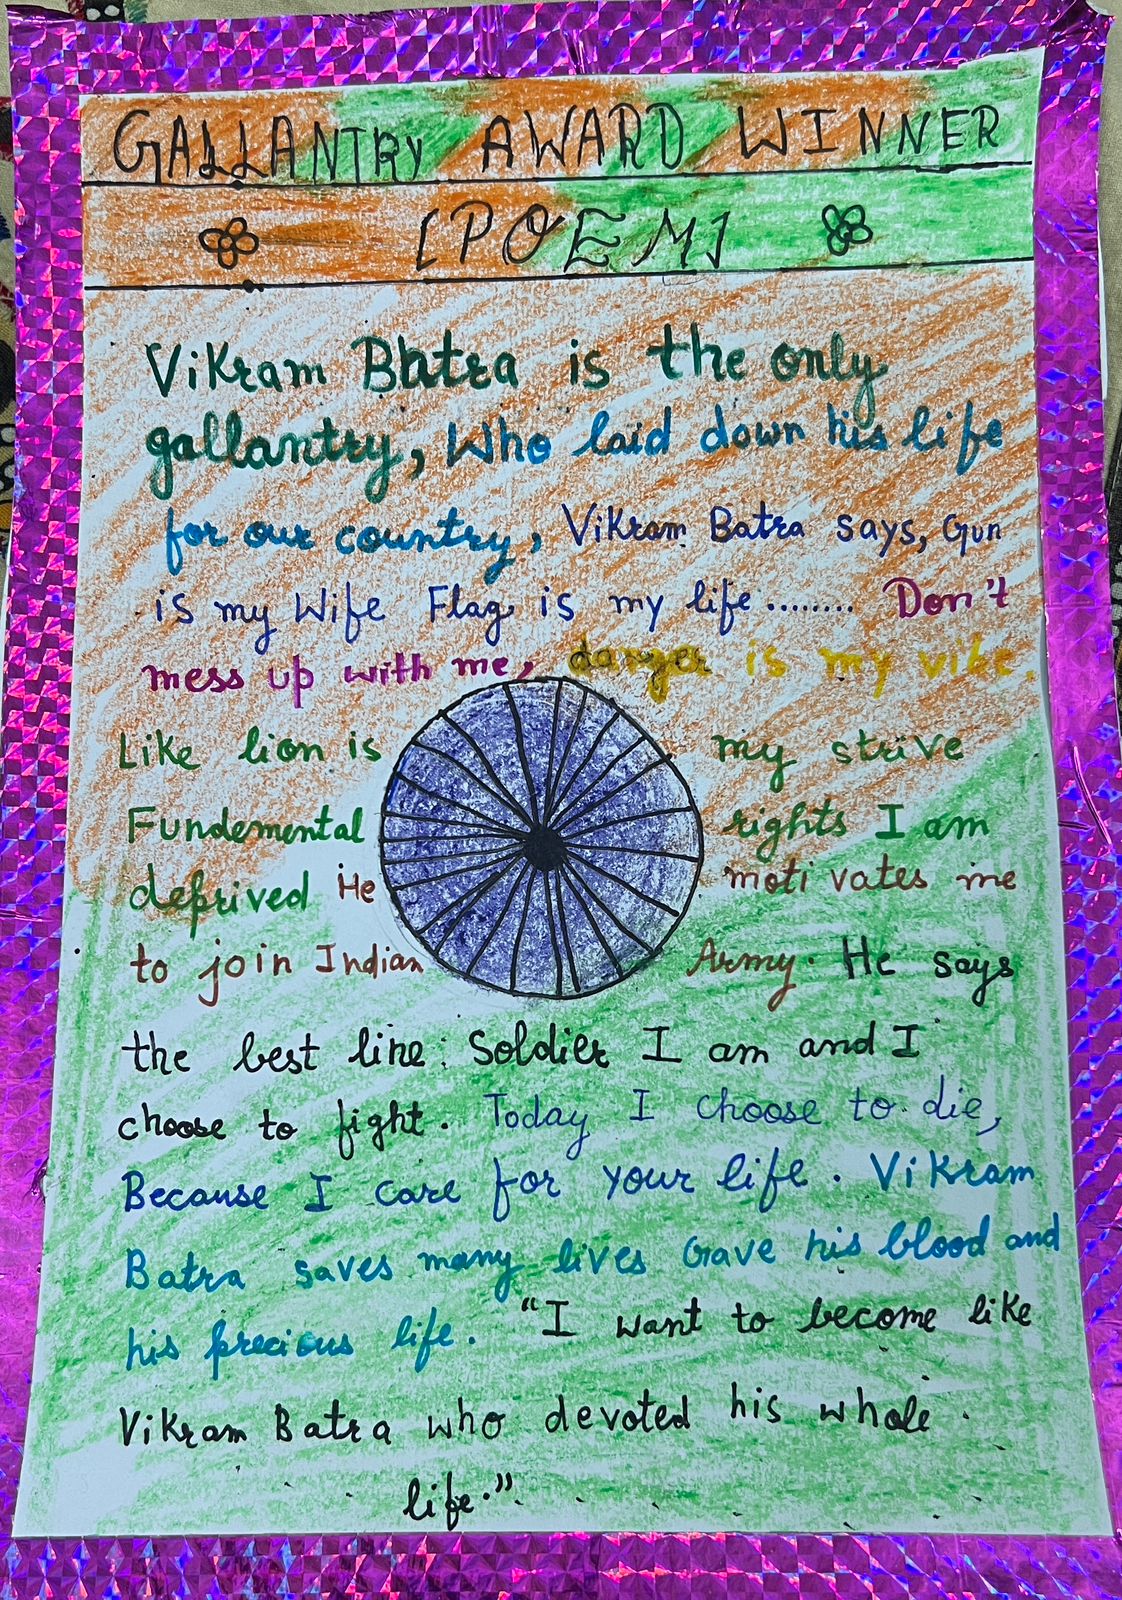 GALLANTRY AWARD WINNER
[POEM]
Vikram Batra is the only
gallantry, Who laid down his life
for our country, Vikram Batra says, Gun
is my Wife Flag is my life........ Don't
mess up with me, danger is my vibe.
Like lion is my strive
Fundemental rights I am
deprived He motivates me
to join Indian Army. He says
the best line: Soldier I am and I
choose to fight. Today I choose to die,
Because I care for your life. Vikram
Batra saves many lives Gave his blood and
his precious life. "I want to become like
Vikram Batra who devoted his whole
life."